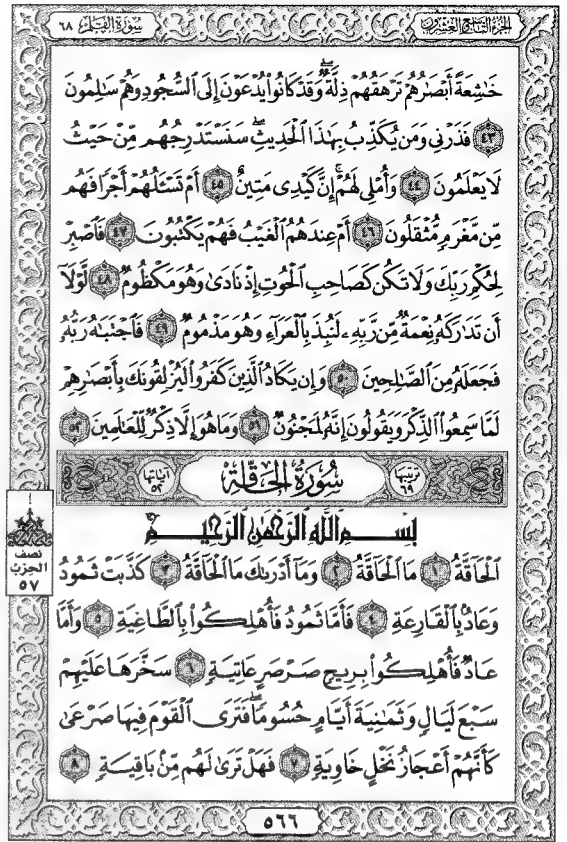 سُورَةُ القَلَمِ ٦٨ الجُزْءُ التَّاسِعُ وَالعِشْرُونَ
خَٰشِعَةً أَبْصَٰرُهُمْ تَرْهَقُهُمْ ذِلَّةٌ ۖ وَقَدْ كَانُوا۟ يُدْعَوْنَ إِلَى ٱلسُّجُودِ وَهُمْ سَٰلِمُونَ
٤٣ فَذَرْنِى وَمَن يُكَذِّبُ بِهَٰذَا ٱلْحَدِيثِ ۖ سَنَسْتَدْرِجُهُم مِّنْ حَيْثُ
لَا يَعْلَمُونَ ٤٤ وَأُمْلِى لَهُمْ ۚ إِنَّ كَيْدِى مَتِينٌ ٤٥ أَمْ تَسْـَٔلُهُمْ أَجْرًا فَهُم
مِّن مَّغْرَمٍ مُّثْقَلُونَ ٤٦ أَمْ عِندَهُمُ ٱلْغَيْبُ فَهُمْ يَكْتُبُونَ ٤٧ فَٱصْبِرْ
لِحُكْمِ رَبِّكَ وَلَا تَكُن كَصَاحِبِ ٱلْحُوتِ إِذْ نَادَىٰ وَهُوَ مَكْظُومٌ ٤٨ لَّوْلَآ
أَن تَدَٰرَكَهُۥ نِعْمَةٌ مِّن رَّبِّهِۦ لَنُبِذَ بِٱلْعَرَآءِ وَهُوَ مَذْمُومٌ ٤٩ فَٱجْتَبَٰهُ رَبُّهُۥ
فَجَعَلَهُۥ مِنَ ٱلصَّٰلِحِينَ ٥٠ وَإِن يَكَادُ ٱلَّذِينَ كَفَرُوا۟ لَيُزْلِقُونَكَ بِأَبْصَٰرِهِمْ
لَمَّا سَمِعُوا۟ ٱلذِّكْرَ وَيَقُولُونَ إِنَّهُۥ لَمَجْنُونٌ ٥١ وَمَا هُوَ إِلَّا ذِكْرٌ لِّلْعَٰلَمِينَ ٥٢
ترتيبها ٦٩ سُورَةُ الحَاقَّةِ آياتها ٥٢
بِسْمِ ٱللَّهِ ٱلرَّحْمَٰنِ ٱلرَّحِيمِ
ٱلْحَآقَّةُ ١ مَا ٱلْحَآقَّةُ ٢ وَمَآ أَدْرَىٰكَ مَا ٱلْحَآقَّةُ ٣ كَذَّبَتْ ثَمُودُ
وَعَادٌۢ بِٱلْقَارِعَةِ ٤ فَأَمَّا ثَمُودُ فَأُهْلِكُوا۟ بِٱلطَّاغِيَةِ ٥ وَأَمَّا
عَادٌ فَأُهْلِكُوا۟ بِرِيحٍ صَرْصَرٍ عَاتِيَةٍ ٦ سَخَّرَهَا عَلَيْهِمْ
سَبْعَ لَيَالٍ وَثَمَٰنِيَةَ أَيَّامٍ حُسُومًا فَتَرَى ٱلْقَوْمَ فِيهَا صَرْعَىٰ
كَأَنَّهُمْ أَعْجَازُ نَخْلٍ خَاوِيَةٍ ٧ فَهَلْ تَرَىٰ لَهُم مِّنۢ بَاقِيَةٍ ٨
نصف
الحزب
٥٧
٥٦٦